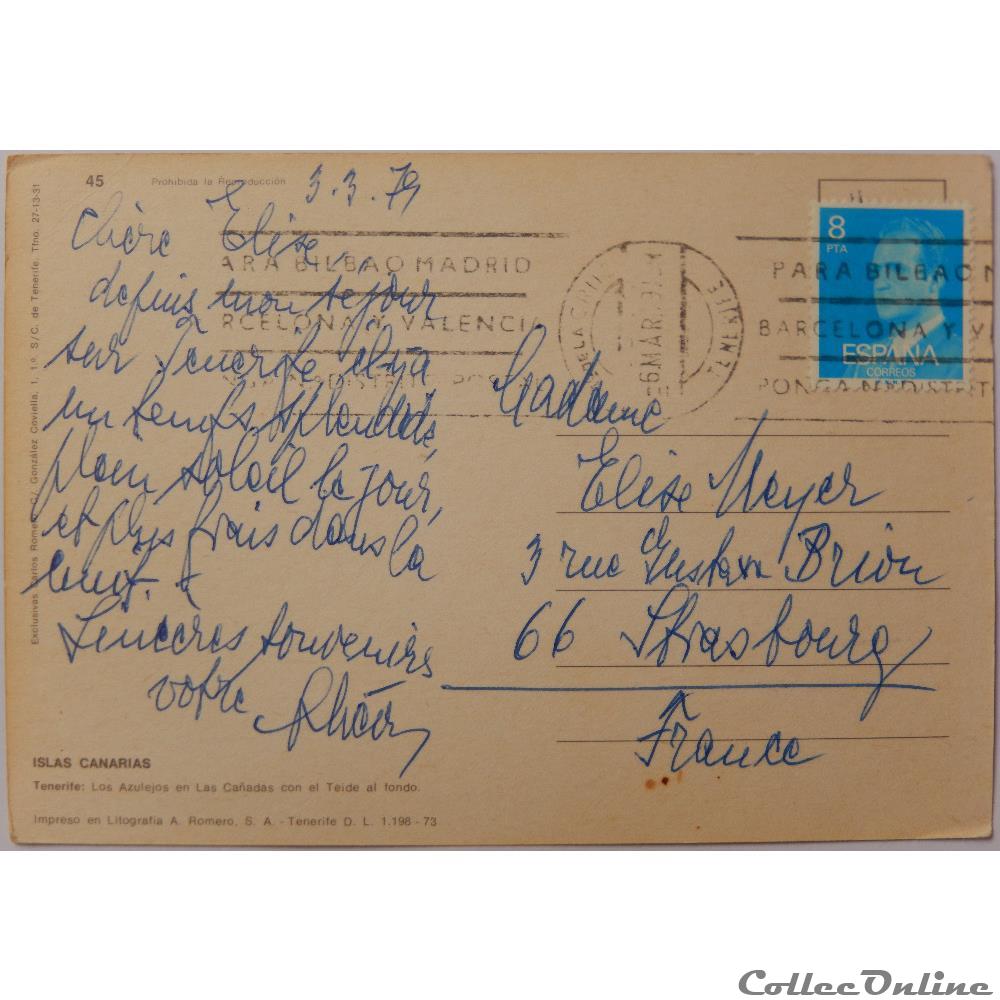 45 Prohibida la Reproducción
3.3.79
Chère Elise,
depuis mon séjour
sur Tenerife il y a
un temps splendide,
plein soleil le jour,
et plus frais dans la
nuit.
Sincères souvenirs
votre
Madame
Elise Meyer
3 rue Gustave Brion
66 Strasbourg
France
8
PTA
ESPAÑA
CORREOS
PARA BILBAO MADRID
BARCELONA Y VALENCIA
PONGA N.º DISTRITO POSTAL
DE LA CRUZ
TENERIFE
6 MAR.
PARA BILBAO M
BARCELONA Y VA
PONGA N.º DISTRITO
Exclusivas Carlos Romero, C/. González Coviella, 1, 1.º S/C. de Tenerife. Tfno. 27-13-31
ISLAS CANARIAS
Tenerife: Los Azulejos en Las Cañadas con el Teide al fondo.
Impreso en Litografía A. Romero, S. A. - Tenerife D. L. 1.198 - 73
CollecOnline